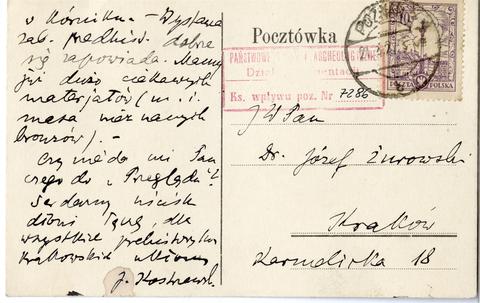 w Kórniku. – Wystawa
zab. przedhist. dobrze
się zapowiada. Mamy
już dużo ciekawych
materjałów (m. i.
masa nieznanych
bronzów). –
Czy nie da mi Pan
czego do „Przeglądu”?
Serdeczny uścisk
dłoni
wszystkie
Krakowskie
J. Kostrzewski
Pocztówka
PAŃSTWOWE ARCHEOLOGICZNE
Dział
Ks. wpływu poz. Nr 7286
POZNAŃ
POCZTA POLSKA
JWPan
Dr. Józef Żurowski
Kraków
Karmelicka 18